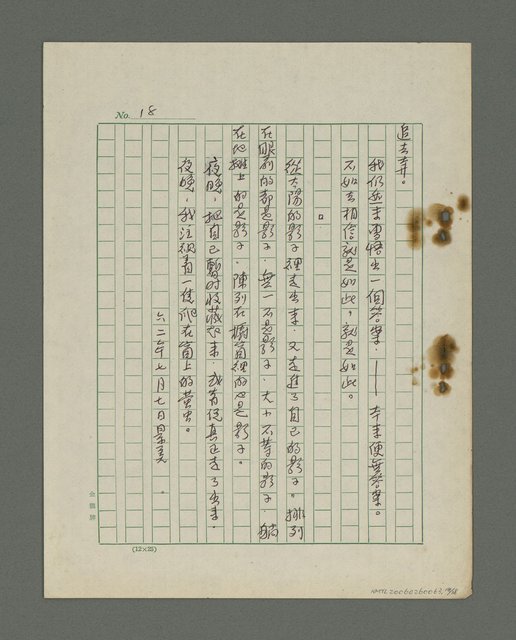 No. 18
追去弃。
我仍然未曾悟出一個答案．——本來便無答案。
不如去相信就是如此，就是如此。
。
從太陽的影子裡走出來．又走進了自己的影子。排列
在眼前的都是影子．無一不是影子．大小不等的影子．躺
在地攤上的是影子．陳列在櫥窗裡的也是影子。
夜晚，把自己暫時收藏起來．或者從真正走了出來．
夜晚，我注視着一隻爬在窗上的螢虫。
六二年七月七日
金鷹牌
(12×25)
NMTL20060260063